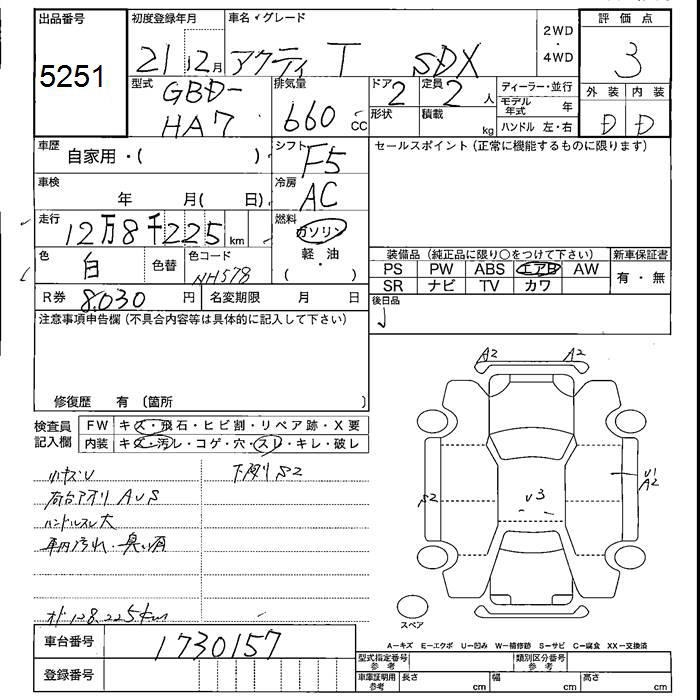 出品番号
5251
初度登録年月
21 12月
車名・グレード
アクティ T SDX
2WD
・
4WD
評価点
3
外装 内装
D D
型式
GBD-
HA7
排気量
660 CC
ドア
2
定員
2 人
形状
積載 kg
ディーラー・並行
モデル年式 年
ハンドル 左・右
車歴
自家用・( )
シフト
F5
セールスポイント(正常に機能するものに限ります)
車検
年 月( 日)
冷房
AC
走行
12万8千225 km
燃料
ガソリン
・
軽 油
・
( )
色
白
色替
色コード
NH578
装備品(純正品に限り○をつけて下さい)
新車保証書
PS PW ABS エアB AW
SR ナビ TV カワ
有・無
R券 8,030 円
名変期限 月 日
後日品
注意事項申告欄(不具合内容等は具体的に記入して下さい)
修復歴 有(箇所 )
検査員
記入欄
FW キズ・飛石・ヒビ割・リペア跡・X要
内装 キズ・汚レ・コゲ・穴・スレ・キレ・破レ
小キズU
下廻りS2
荷台アオリAUS
ハンドルスレ大
車内汚れ・臭い有
オド128,225km
A2 A2
S2
U3
U1
A2
スペア
A-キズ E-エクボ U-凹み W-補修跡 S-サビ C-腐食 XX-交換済
車台番号
1730157
登録番号
型式指定番号
参考
類別区分番号
参考
車庫証明用
参考
長さ cm
幅 cm
高さ cm